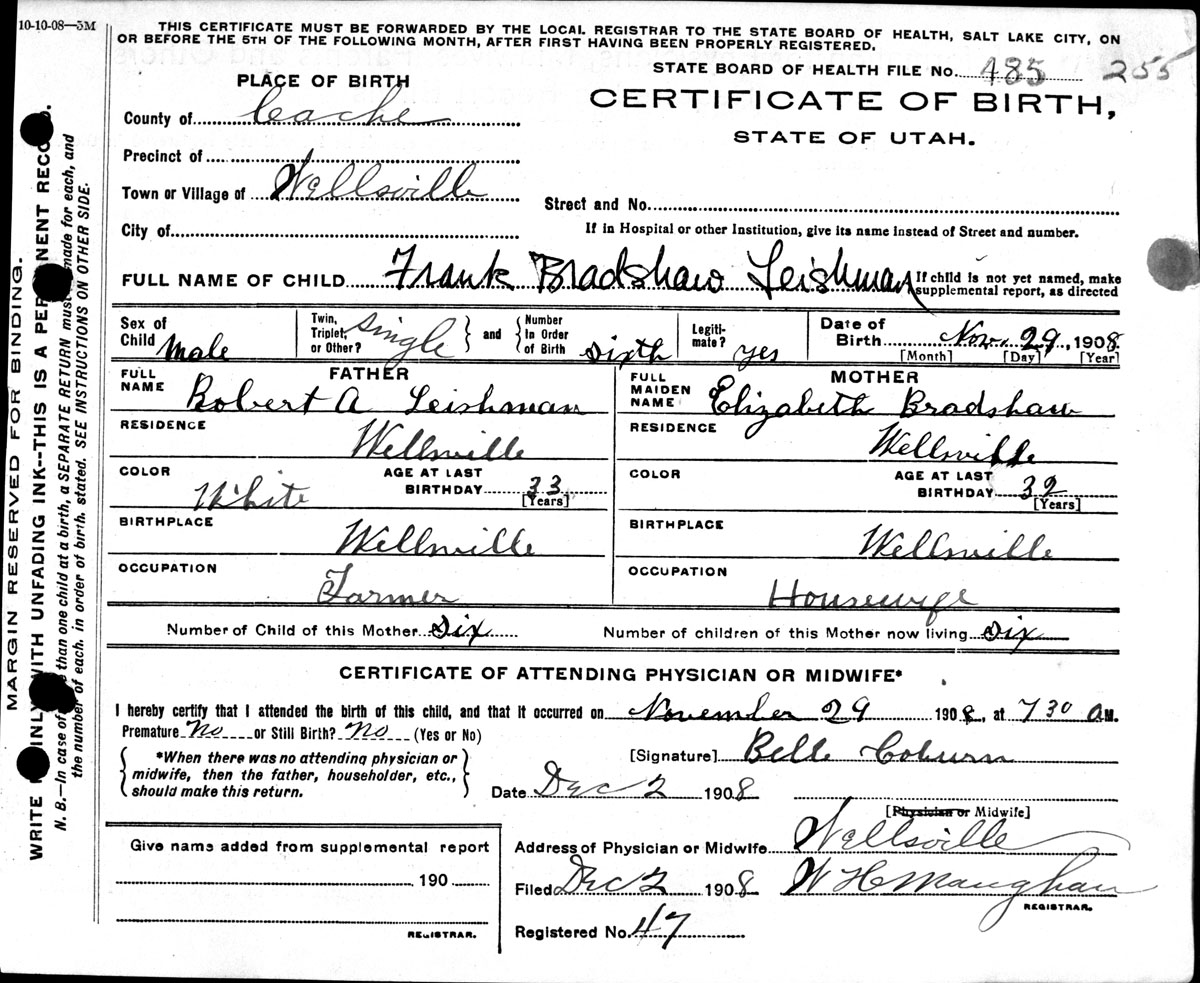 10-10-08—5M
THIS CERTIFICATE MUST BE FORWARDED BY THE LOCAL REGISTRAR TO THE STATE BOARD OF HEALTH, SALT LAKE CITY, ON
OR BEFORE THE 5TH OF THE FOLLOWING MONTH, AFTER FIRST HAVING BEEN PROPERLY REGISTERED.
STATE BOARD OF HEALTH FILE No. 185 255
PLACE OF BIRTH
CERTIFICATE OF BIRTH,
STATE OF UTAH.
County of Cache
Precinct of
Town or Village of Wellsville
Street and No.
City of
If in Hospital or other Institution, give its name instead of Street and number.
FULL NAME OF CHILD Frank Bradshaw Leishman
If child is not yet named, make
supplemental report, as directed
Sex of Child Male
Twin, Triplet, or Other? Single
and Number In Order of Birth Sixth
Legiti-mate? yes
Date of Birth Nov. 29, 1908
[Month] [Day] [Year]
FATHER
FULL NAME Robert A Leishman
RESIDENCE
Wellsville
COLOR White
AGE AT LAST BIRTHDAY 33
[Years]
BIRTHPLACE
Wellsville
OCCUPATION
Farmer
MOTHER
FULL MAIDEN NAME Elizabeth Bradshaw
RESIDENCE
Wellsville
COLOR
AGE AT LAST BIRTHDAY 32
[Years]
BIRTHPLACE
Wellsville
OCCUPATION
Housewife
Number of Child of this Mother Six
Number of children of this Mother now living Six
CERTIFICATE OF ATTENDING PHYSICIAN OR MIDWIFE*
I hereby certify that I attended the birth of this child, and that it occurred on November 29 1908, at 7 30 A.M.
Premature No or Still Birth? No (Yes or No)
*When there was no attending physician or
midwife, then the father, householder, etc.,
should make this return.
[Signature] Belle Coburn
Date Dec 2 1908
[Physician or Midwife]
Give name added from supplemental report
190
REGISTRAR.
Address of Physician or Midwife Wellsville
Filed Dec 2 1908 W H Maughan
REGISTRAR.
Registered No. 47
MARGIN RESERVED FOR BINDING.
WRITE INLY WITH UNFADING INK--THIS IS A PE NENT RECO
N. B.—In case of than one child at a birth, a SEPARATE RETURN must made for each, and
the number of each, in order of birth, stated. SEE INSTRUCTIONS ON OTHER SIDE.